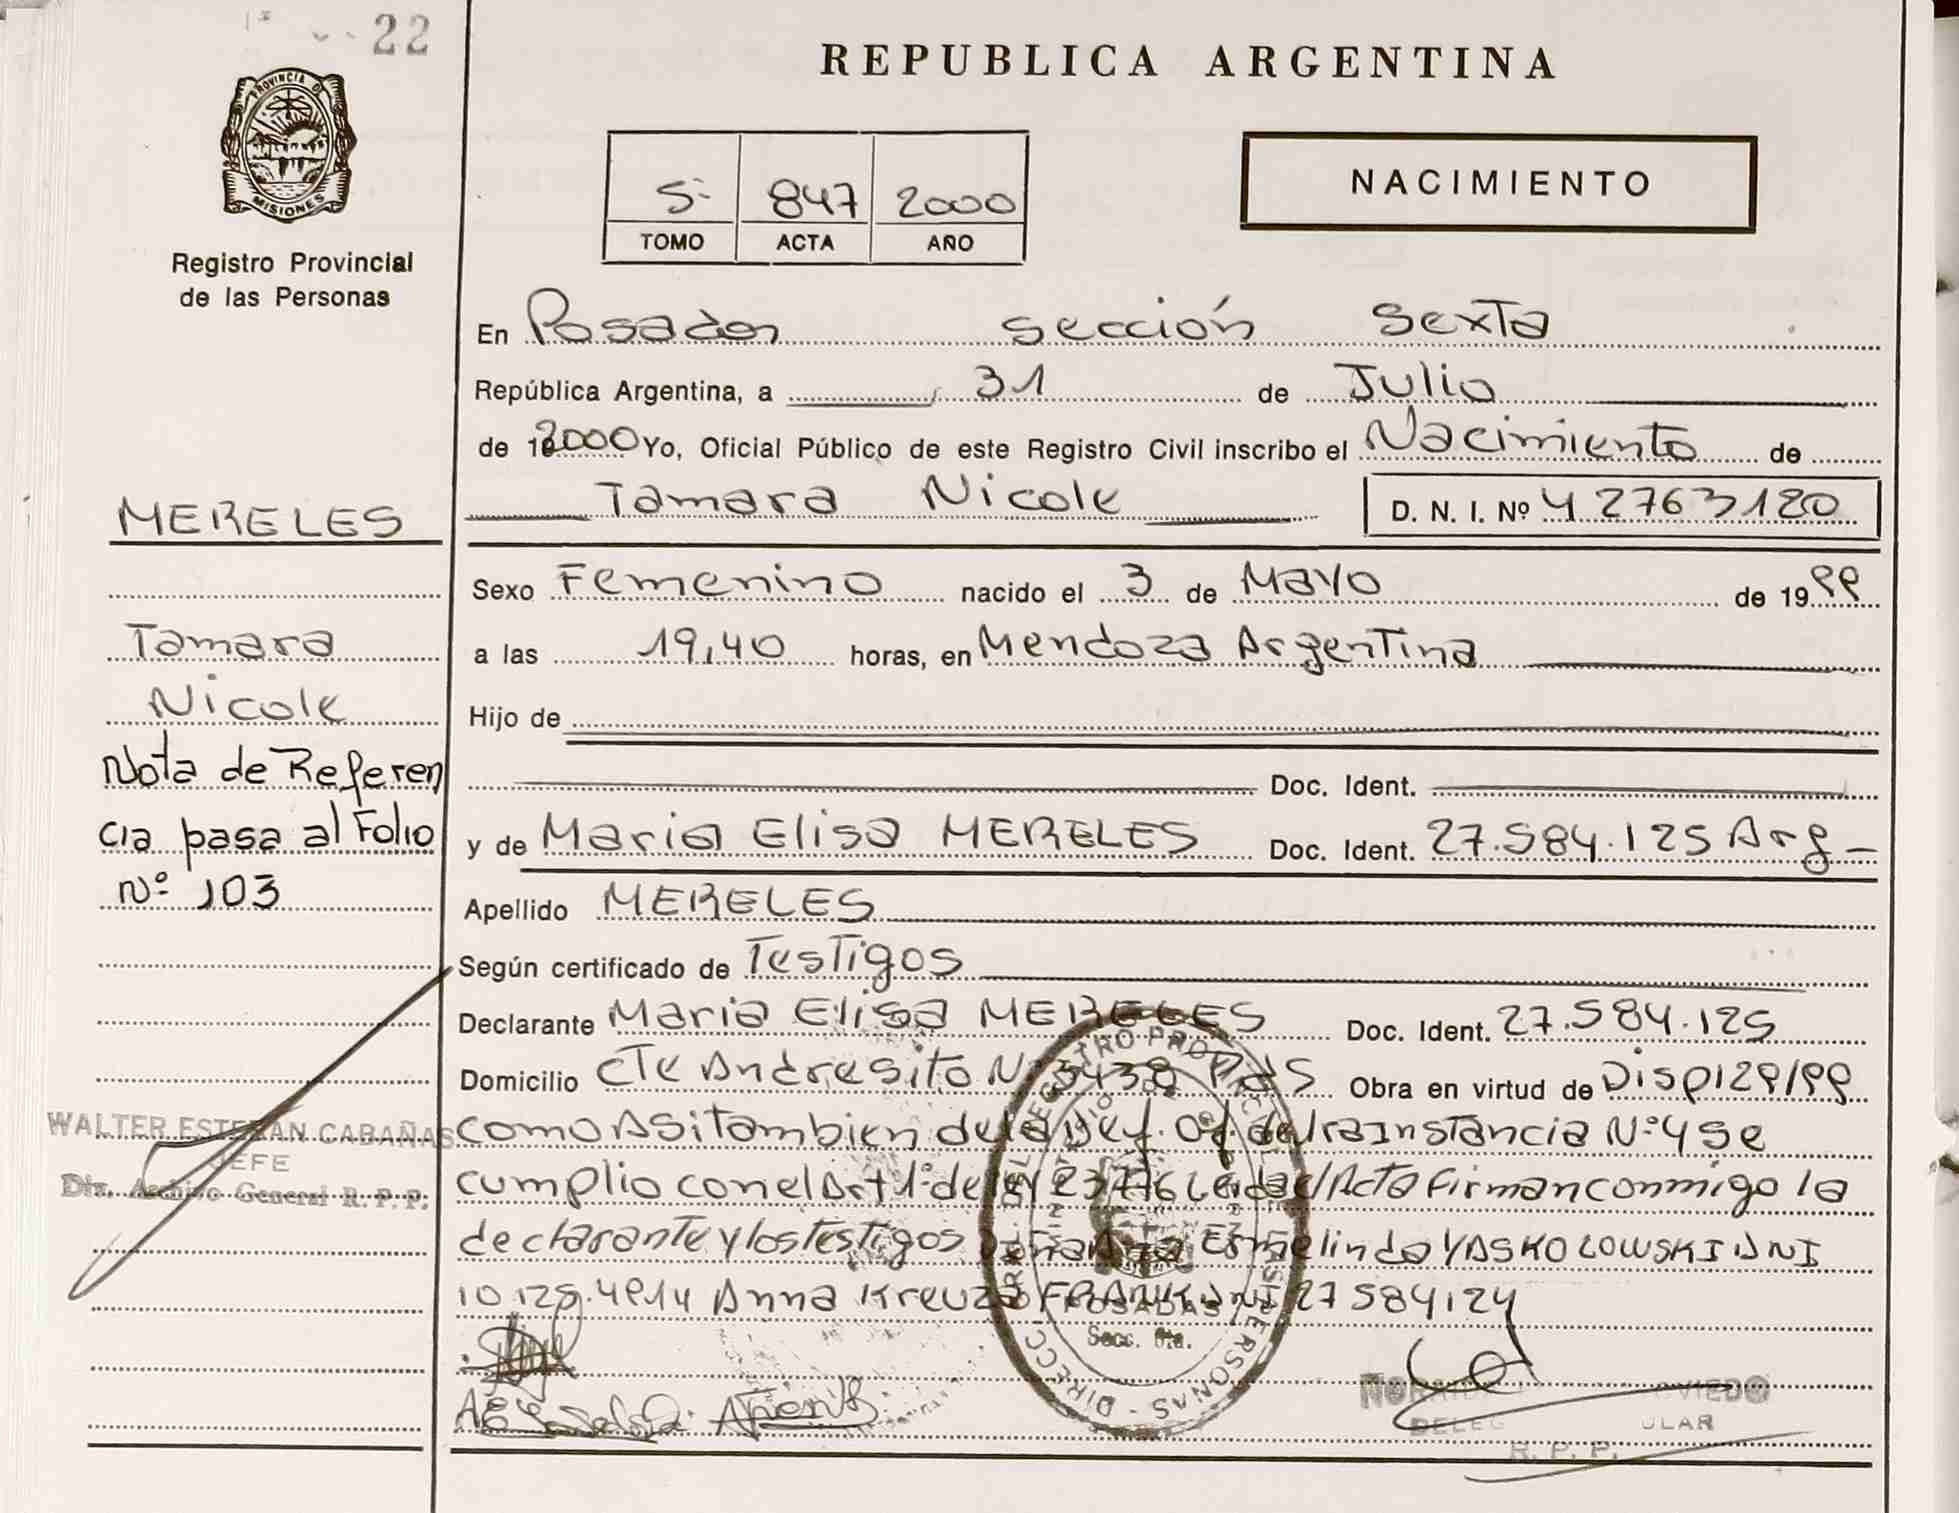 22
REPUBLICA ARGENTINA
PROVINCIA DE
MISIONES
Registro Provincial
de las Personas
5º 847 2000
TOMO ACTA AÑO
NACIMIENTO
En Posadas sección sexta
República Argentina, a 31 de Julio
de 192000 Yo, Oficial Público de este Registro Civil inscribo el Nacimiento de
Tamara Nicole D. N. I. Nº 42763120
MERELES
Tamara
Nicole
Nota de Referen
cia pasa al Folio
Nº 103
WALTER ESTEBAN CABAÑAS
JEFE
Dir. Archivo General R. P. P.
Sexo Femenino nacido el 3 de Mayo de 1999
a las 19,40 horas, en Mendoza Argentina
Hijo de
Doc. Ident.
y de Maria Elisa MERELES Doc. Ident. 27.584.125 Arg
Apellido MERELES
Según certificado de Testigos
Declarante Maria Elisa MERELES Doc. Ident. 27.584.125
Domicilio CTE Andresito Nº 3438 Pdas Obra en virtud de Disp 129/99
como Asi tambien de la Def. Of. de 1ra Instancia Nº 4 se
cumplio con el Art 1º de ley 23776 Leida el Acta firman conmigo la
declarante y los testigos Ermelinda YASKOLOWSKI DNI
Anna Kreuza FRANK DNI 27584124
DIRECC. GRAL. DEL REGISTRO PROVINCIAL DE LAS PERSONAS
POSADAS
Secc. 6ta.
OVIEDO
R. P. P.